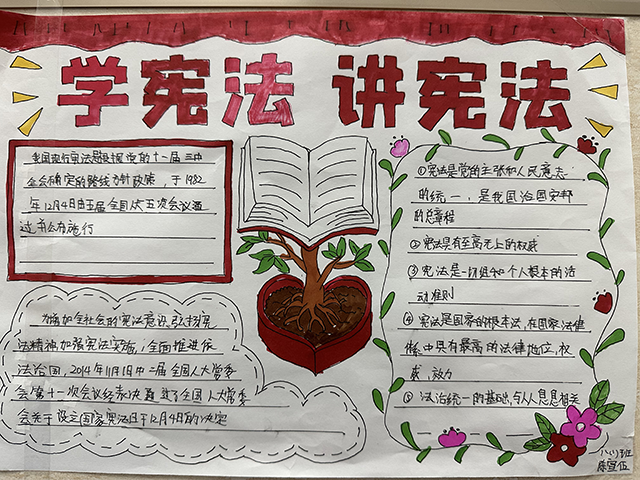 学宪法 讲宪法
我国现行宪法是根据党的十一届三中
全会确定的路线方针政策，于1982
年12月4日由五届全国人大五次会议通
过并公布施行
为增加全社会的宪法意识弘扬宪
法精神加强宪法实施，全面推进依
法治国，2014年11月1日十二届全国人大常委
会第十一次会议经表决通过了全国人大常委
会关于设立国家宪法日于12月4日的决定
①宪法是党的主张和人民意志
的统一，是我国治国安邦
的总章程
②宪法具有至高无上的权威
③宪法是一切组织和个人根本的活
动准则
④宪法是国家的根本法，在国家法律
体系中具有最高的法律地位，权
威，效力
⑤法治统一的基础，与人人息息相关
八(1)班